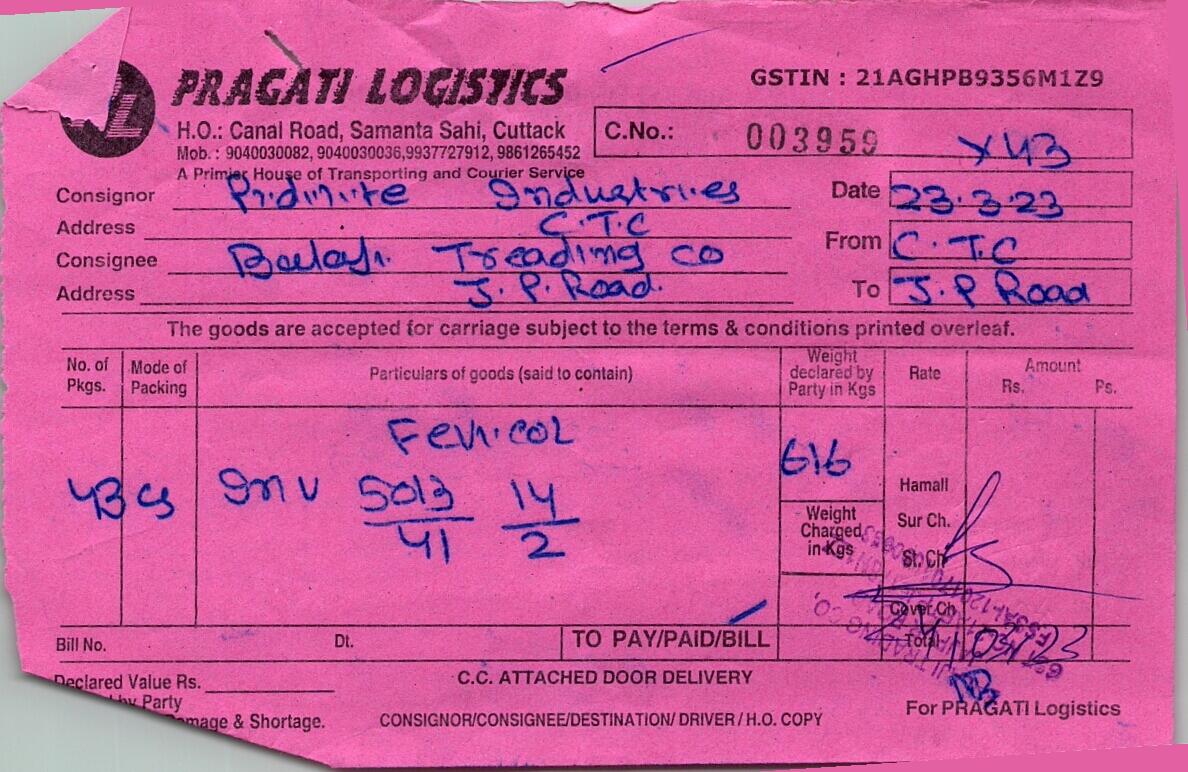 PRAGATI LOGISTICS
GSTIN : 21AGHPB9356M1Z9
H.O.: Canal Road, Samanta Sahi, Cuttack
Mob. : 9040030082, 9040030036,9937727912, 9861265452
A Primier House of Transporting and Courier Service
C.No.: 003959 X43
Consignor Pidinite Industries
Date 23.3.23
Address C.T.C
From C.T.C
Consignee Balaji Treading co
Address J.P. Road.
To J.P Road
The goods are accepted for carriage subject to the terms & conditions printed overleaf.
No. of Pkgs. Mode of Packing Particulars of goods (said to contain) Weight declared by Party in Kgs Rate Amount Rs. Ps.
Fevicol
616
43 cs Inv 5013/41 14/2
Hamall
Weight Charged in Kgs
Sur Ch.
St. Ch
Cover Ch
Total
Bill No. Dt. TO PAY/PAID/BILL
Declared Value Rs.
C.C. ATTACHED DOOR DELIVERY
by Party
& Shortage.
CONSIGNOR/CONSIGNEE/DESTINATION/ DRIVER / H.O. COPY
For PRAGATI Logistics